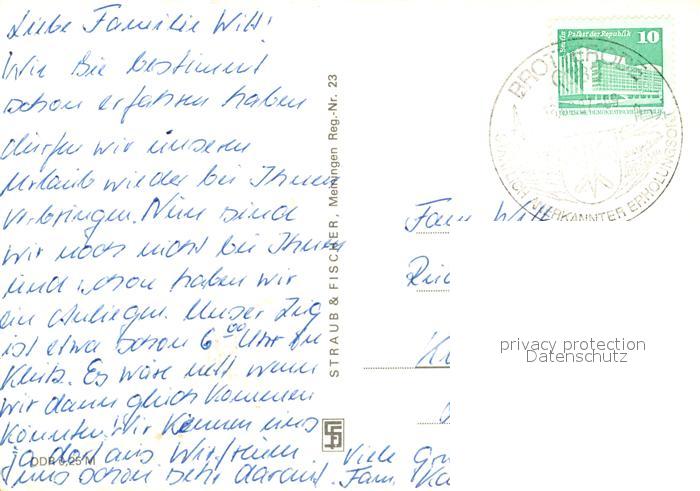 Liebe Familie Witt!
Wie Sie bestimmt
schon erfahren haben
dürfen wir unseren
Urlaub wieder bei Ihnen
verbringen. Nun sind
wir noch nicht bei Ihnen
und schon haben wir
ein Anliegen. Unser Zug
ist etwa schon 6⁰⁰ Uhr in
Klütz. Es wäre nett wenn
wir dann gleich kommen
könnten. Wir kennen uns
ja dort aus. Wir freuen
uns schon sehr darauf.
Viele
Fam.
DDR 0,25 M
STRAUB & FISCHER, Meiningen Reg.-Nr. 23
Palast der Republik
10
DEUTSCHE DEMOKRATISCHE REPUBLIK
BROTTERODE
STAATLICH ANERKANNTER ERHOLUNGSORT
Fam. Witt
privacy protection
Datenschutz